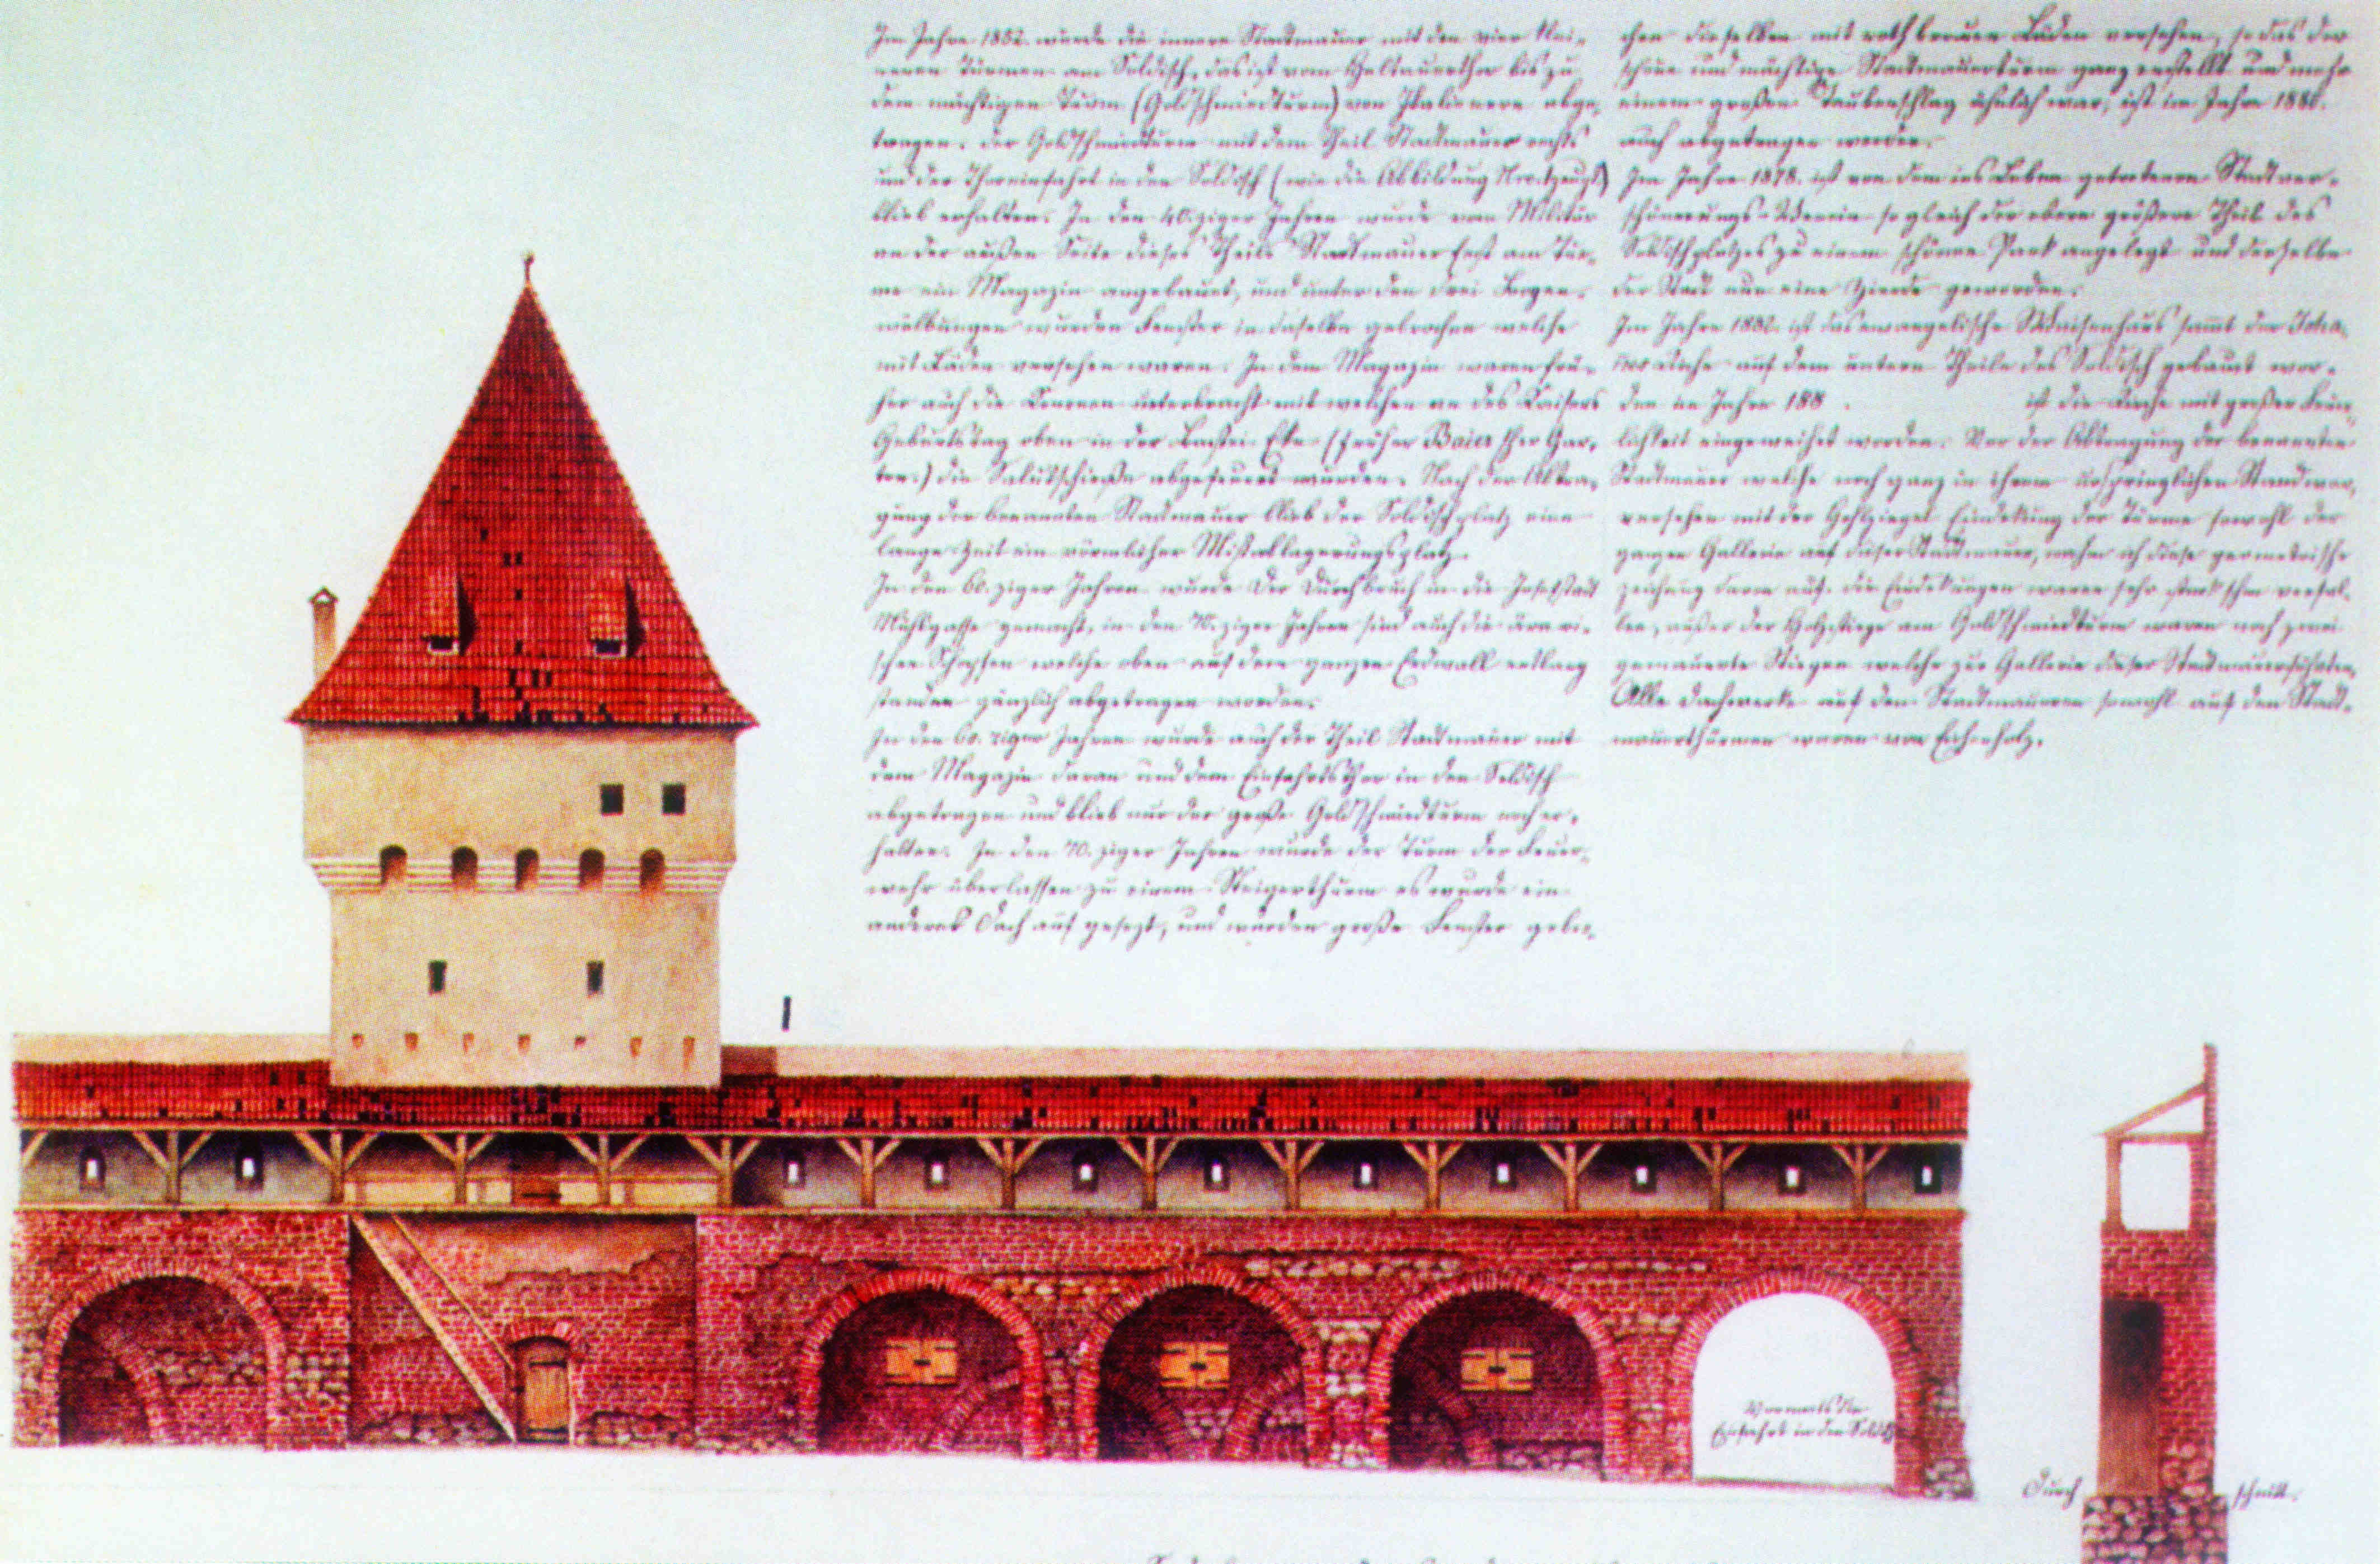 Im Jahre 1852. wurde die innere Stadtmauer mit den vier klei-
neren Türmen am Soldisch, das ist vom Heltauerthor bis zu
dem mächtigen Turm (Goldschmiedturm) von Italienern abge-
tragen. Der Goldschmiedturm mit dem Theil Stadtmauer rechts
und der Thoreinfahrt in den Soldisch (wie die Abbildung
blieb erhalten. In den 40.ziger Jahren wurde vom Militär
an der außen Seite dieses Theils Stadtmauer fest am Tur-
me ein Magazin angebaut, und unter den drei Bogen-
wölbungen wurden Fenster in dieselbe gebrochen welche
mit Läden versehen waren. In dem Magazin waren frü-
her auch die Kanonen unterbracht mit welchen an des Kaisers
Geburtstag oben in der Bastei Eke (früher Baier
ten) die Salutschieße abgefeuert wurden. Nach der Abtra-
gung der benannten Stadtmauer blieb der Soldischplatz eine
lange Zeit ein förmlicher Mistablagerungsplatz.
In den 60.ziger Jahren wurde der Durchbruch in die Josefstadt
Mühlgasse gemacht, in den 70.ziger Jahren sind auch die ärari-
schen Schopfen welche oben auf dem ganzen Erdwall entlang
standen gänzlich abgetragen worden.
In den 60.ziger Jahren wurde auch der Theil Stadtmauer mit
dem Magazin daran und dem Einfahrts Thor in den Soldisch
abgetragen und blieb nur der große Goldschmiedturm noch er-
halten. In den 70.ziger Jahren wurde der Turm der Feuer-
wehr überlassen zu einem Steigerthurm es wurde ein
anderes Dach auf gesezt, und wurden große Fenster gebro-
chen dieselben mit rothbrauen Läden versehen, so das der
schöne und mächtige Stadtmauerturm ganz enstellt und mehr
einem großen Taubenschlag ähnlich war, ist im Jahre
auch abgetragen worden.
Im Jahre 1878. ist von dem ins Leben getretenen Stadtver-
schönerungs-Verein so gleich der obere größere Theil des
Soldischplatzes zu einem schönen Park angelegt und derselbe
der Stadt nun eine Zierde geworden.
Im Jahre 1882. ist das evangelische Waisenhaus sammt der Joha-
nes Kirche auf dem untern Theile des Soldisch gebaut wor-
den im Jahre 188 . ist die Kirche mit großer Feier-
lichkeit eingeweihet worden. Vor der Abtragung der benannten
Stadtmauer welche noch ganz in ihrem ursprünglichen Stand war,
versehen mit der Hohlziegel Eindekung der Türme sowohl der
ganzen Gallerie auf dieser Stadtmauer, nahm ich diese geometrische
zeichung davon auf. Die Eindekungen waren sehr stark schon verfal-
len, außer der Holzstiege am Goldschmiedturm waren noch zwei
gemauerte Stiegen welche zur Gallerie dieser Stadtmauer führten.
Alle Dachwerke auf den Stadtmauern sowohl auf den Stadt-
mauerthürmen waren von Eichenholz.
I
Vormals die
Einfahrt in den Soldisch
Durch schnitt.